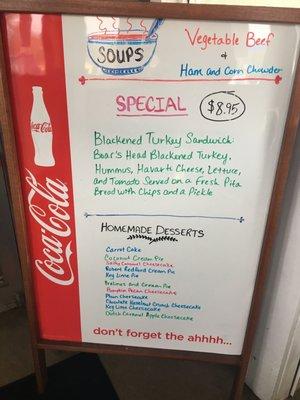 SOUPS
Vegetable Beef
&
Ham and Corn Chowder
SPECIAL
$8.95
Blackened Turkey Sandwich:
Boar's Head Blackened Turkey,
Hummus, Havarti Cheese, Lettuce,
and Tomato Served on a Fresh Pita
Bread with Chips and a Pickle
Coca-Cola
Coca-Cola
HOMEMADE DESSERTS
Carrot Cake
Coconut Cream Pie
Salty Caramel Cheesecake
Robert Redford Cream Pie
Key Lime Pie
Pralines and Cream Pie
Pumpkin Pecan Cheesecake
Plain Cheesecake
Chocolate Hazelnut Crunch Cheesecake
Key Lime Cheesecake
Dutch Caramel Apple Cheesecake
don't forget the ahhhh...